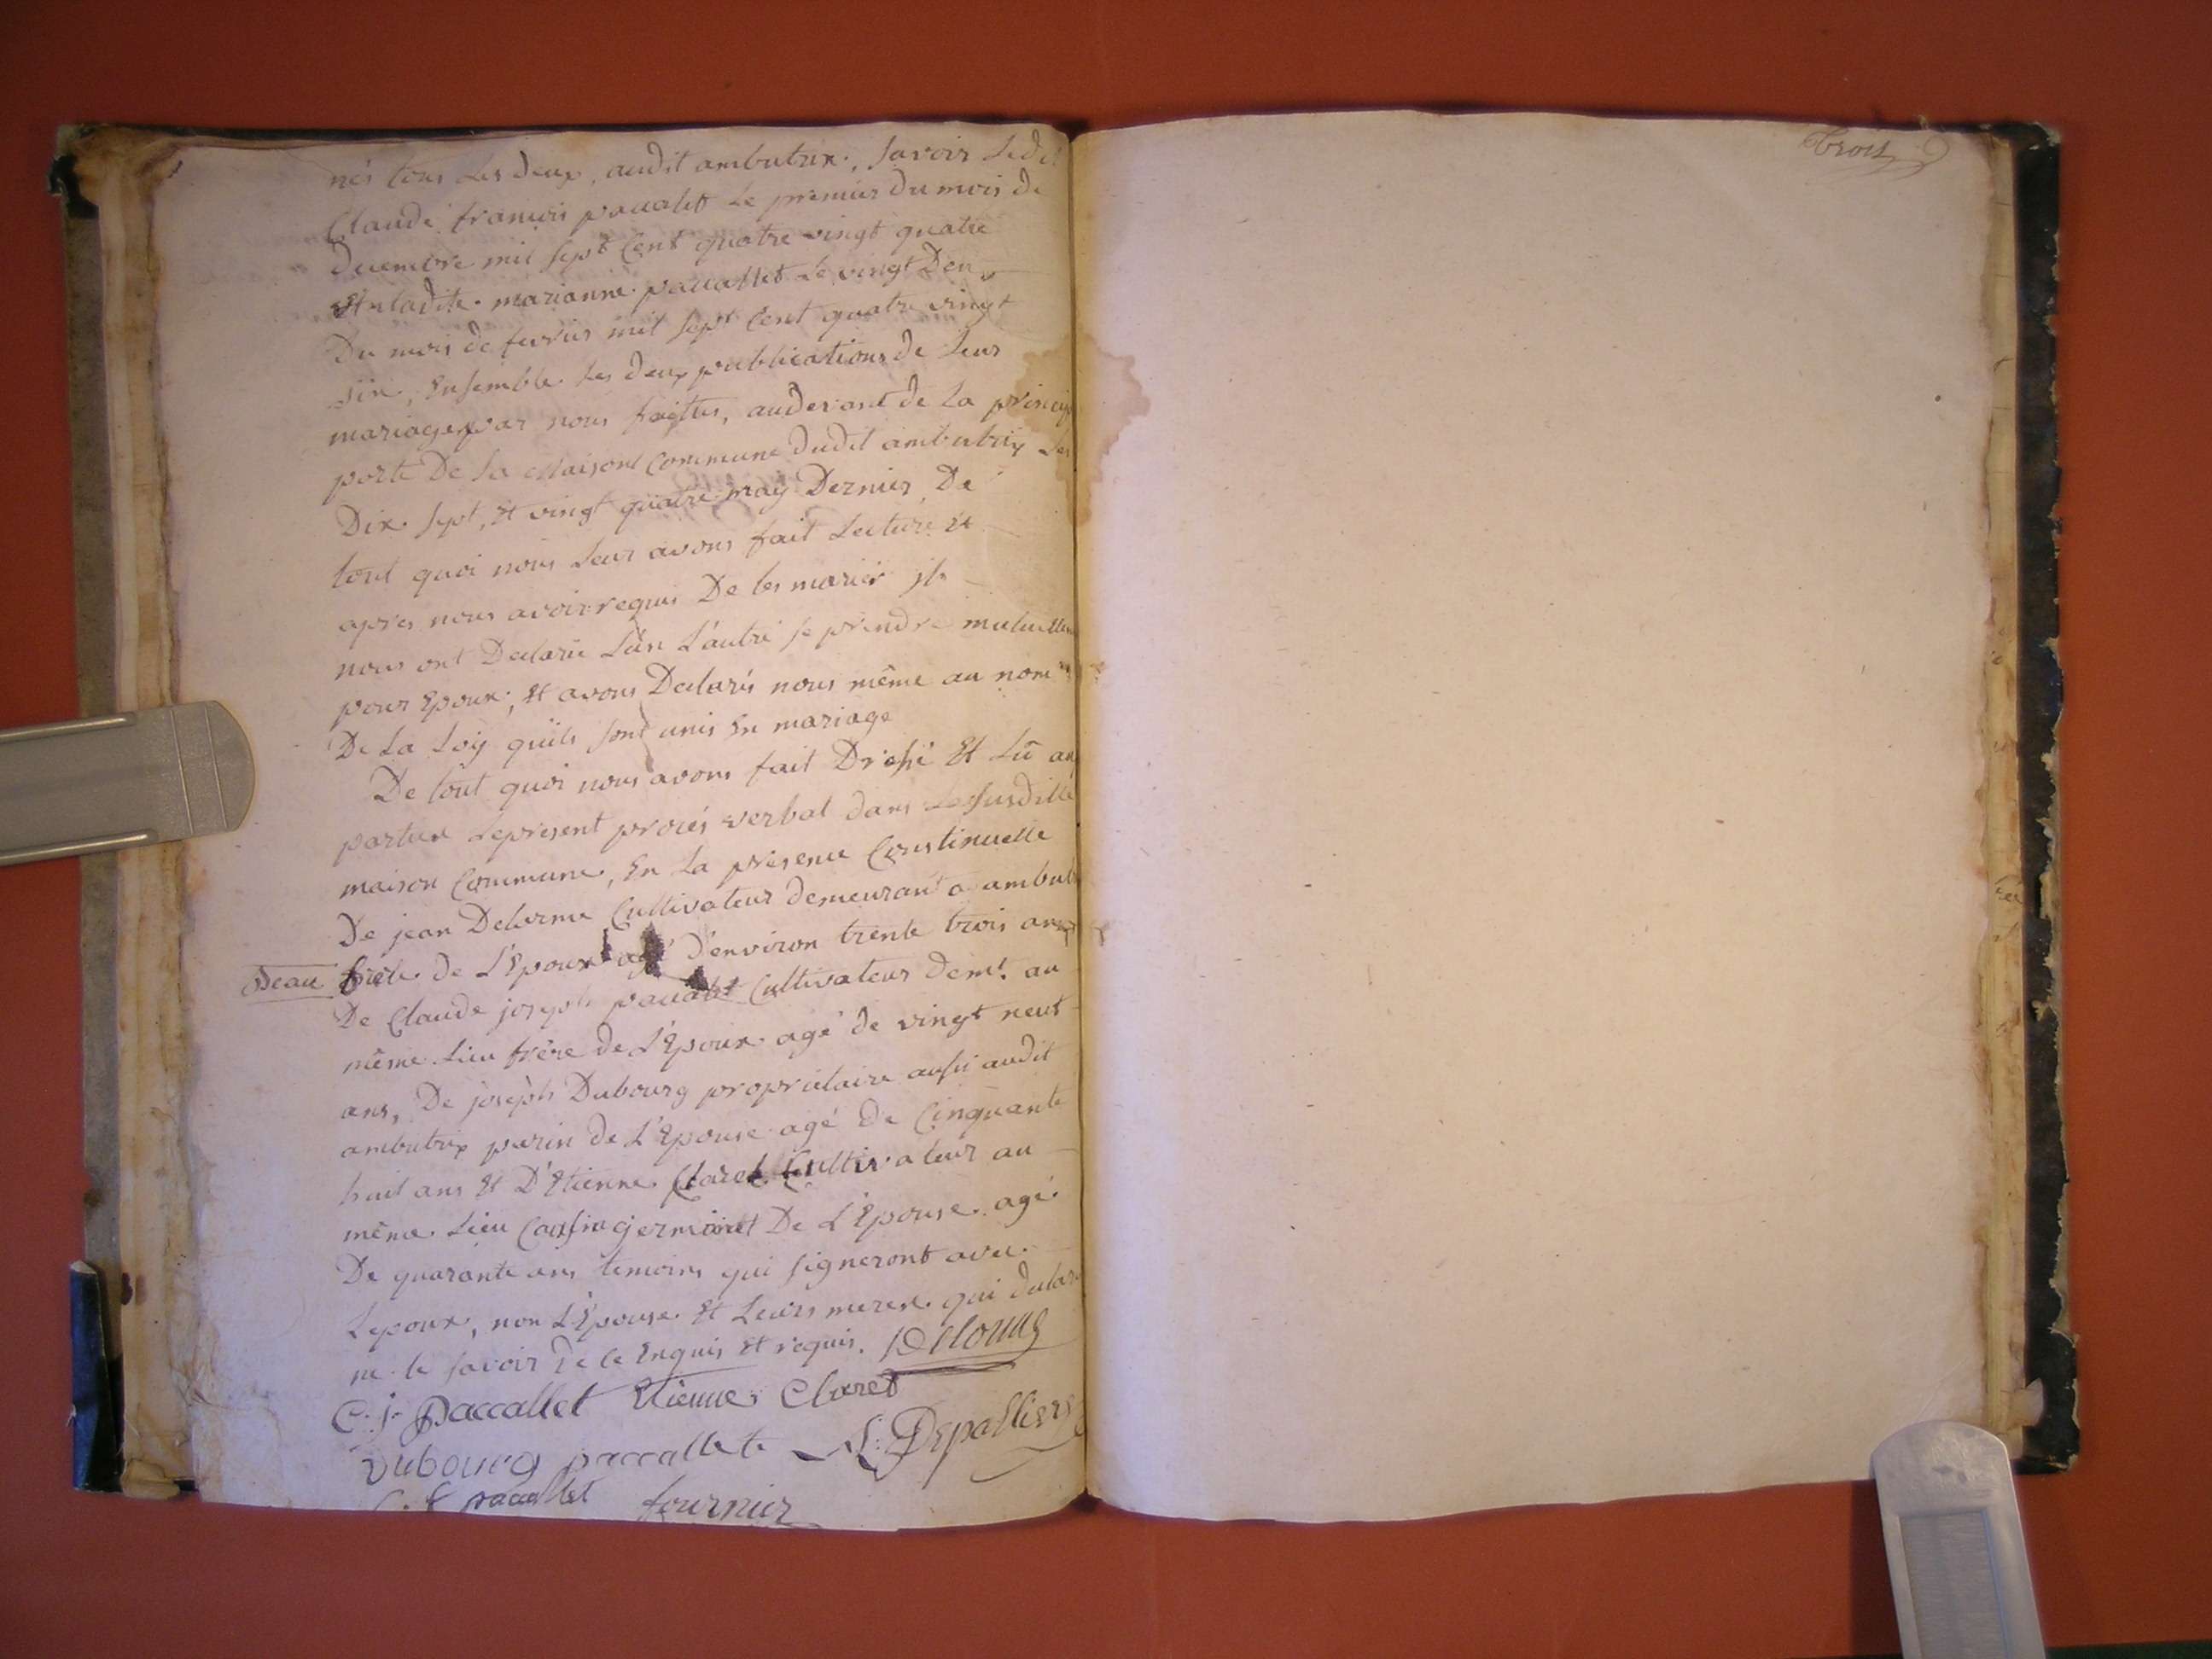 nés tous les deux, audit ambutrix, savoir ledit
Claude francois paccalet le premier du mois de
decembre mil sept cent quatre vingt quatre
Et ladite marianne paccallet le vingt Deux
Du mois de fevrier mil sept cent quatre vingt
six, Ensemble les deux publications de leur
mariage par nous faittes, audevant de la princip
porte De la Maison Commune dudit ambutrix les
Dix sept, Et vingt quatre may Dernier, De
tout quoi nous leur avons fait Lecture Et
apres nous avoir requis De les marier ils
nous ont Declaré L'un L'autre se prendre mutuellem
pour Epoux, Et avons Declarés nous même au nom
De La Loy qu'ils sont unis En mariage
De tout quoi nous avons fait Dressé Et Lû aux
parties Le present procés verbal dans La susditte
maison Commune, En La presence Continuelle
De jean Delorme Cultivateur demeurant a ambut
Beau frere de L'Epoux agé d'environ trente trois ans
De Claude joseph paccalet Cultivateur demt. au
même Lieu frère de L'Epoux agé de vingt neuf
ans, De joseph Dubourg proprietaire aussi audit
ambutrix parin de L'Epouse agé De Cinquante
huit ans Et D'Etienne Claret Cultivateur au
même Lieu Cousin germain De L'Epouse agé
De quarante ans temoins qui signeront avec
Lepoux, non L'Epouse Et Leurs meres qui declar
ne le savoir de ce Enquis Et requis. Delorme
C. j. Paccallet Etienne Claret
Dubourg paccallet L. Depalliere
C. f paccallet fournier
trois